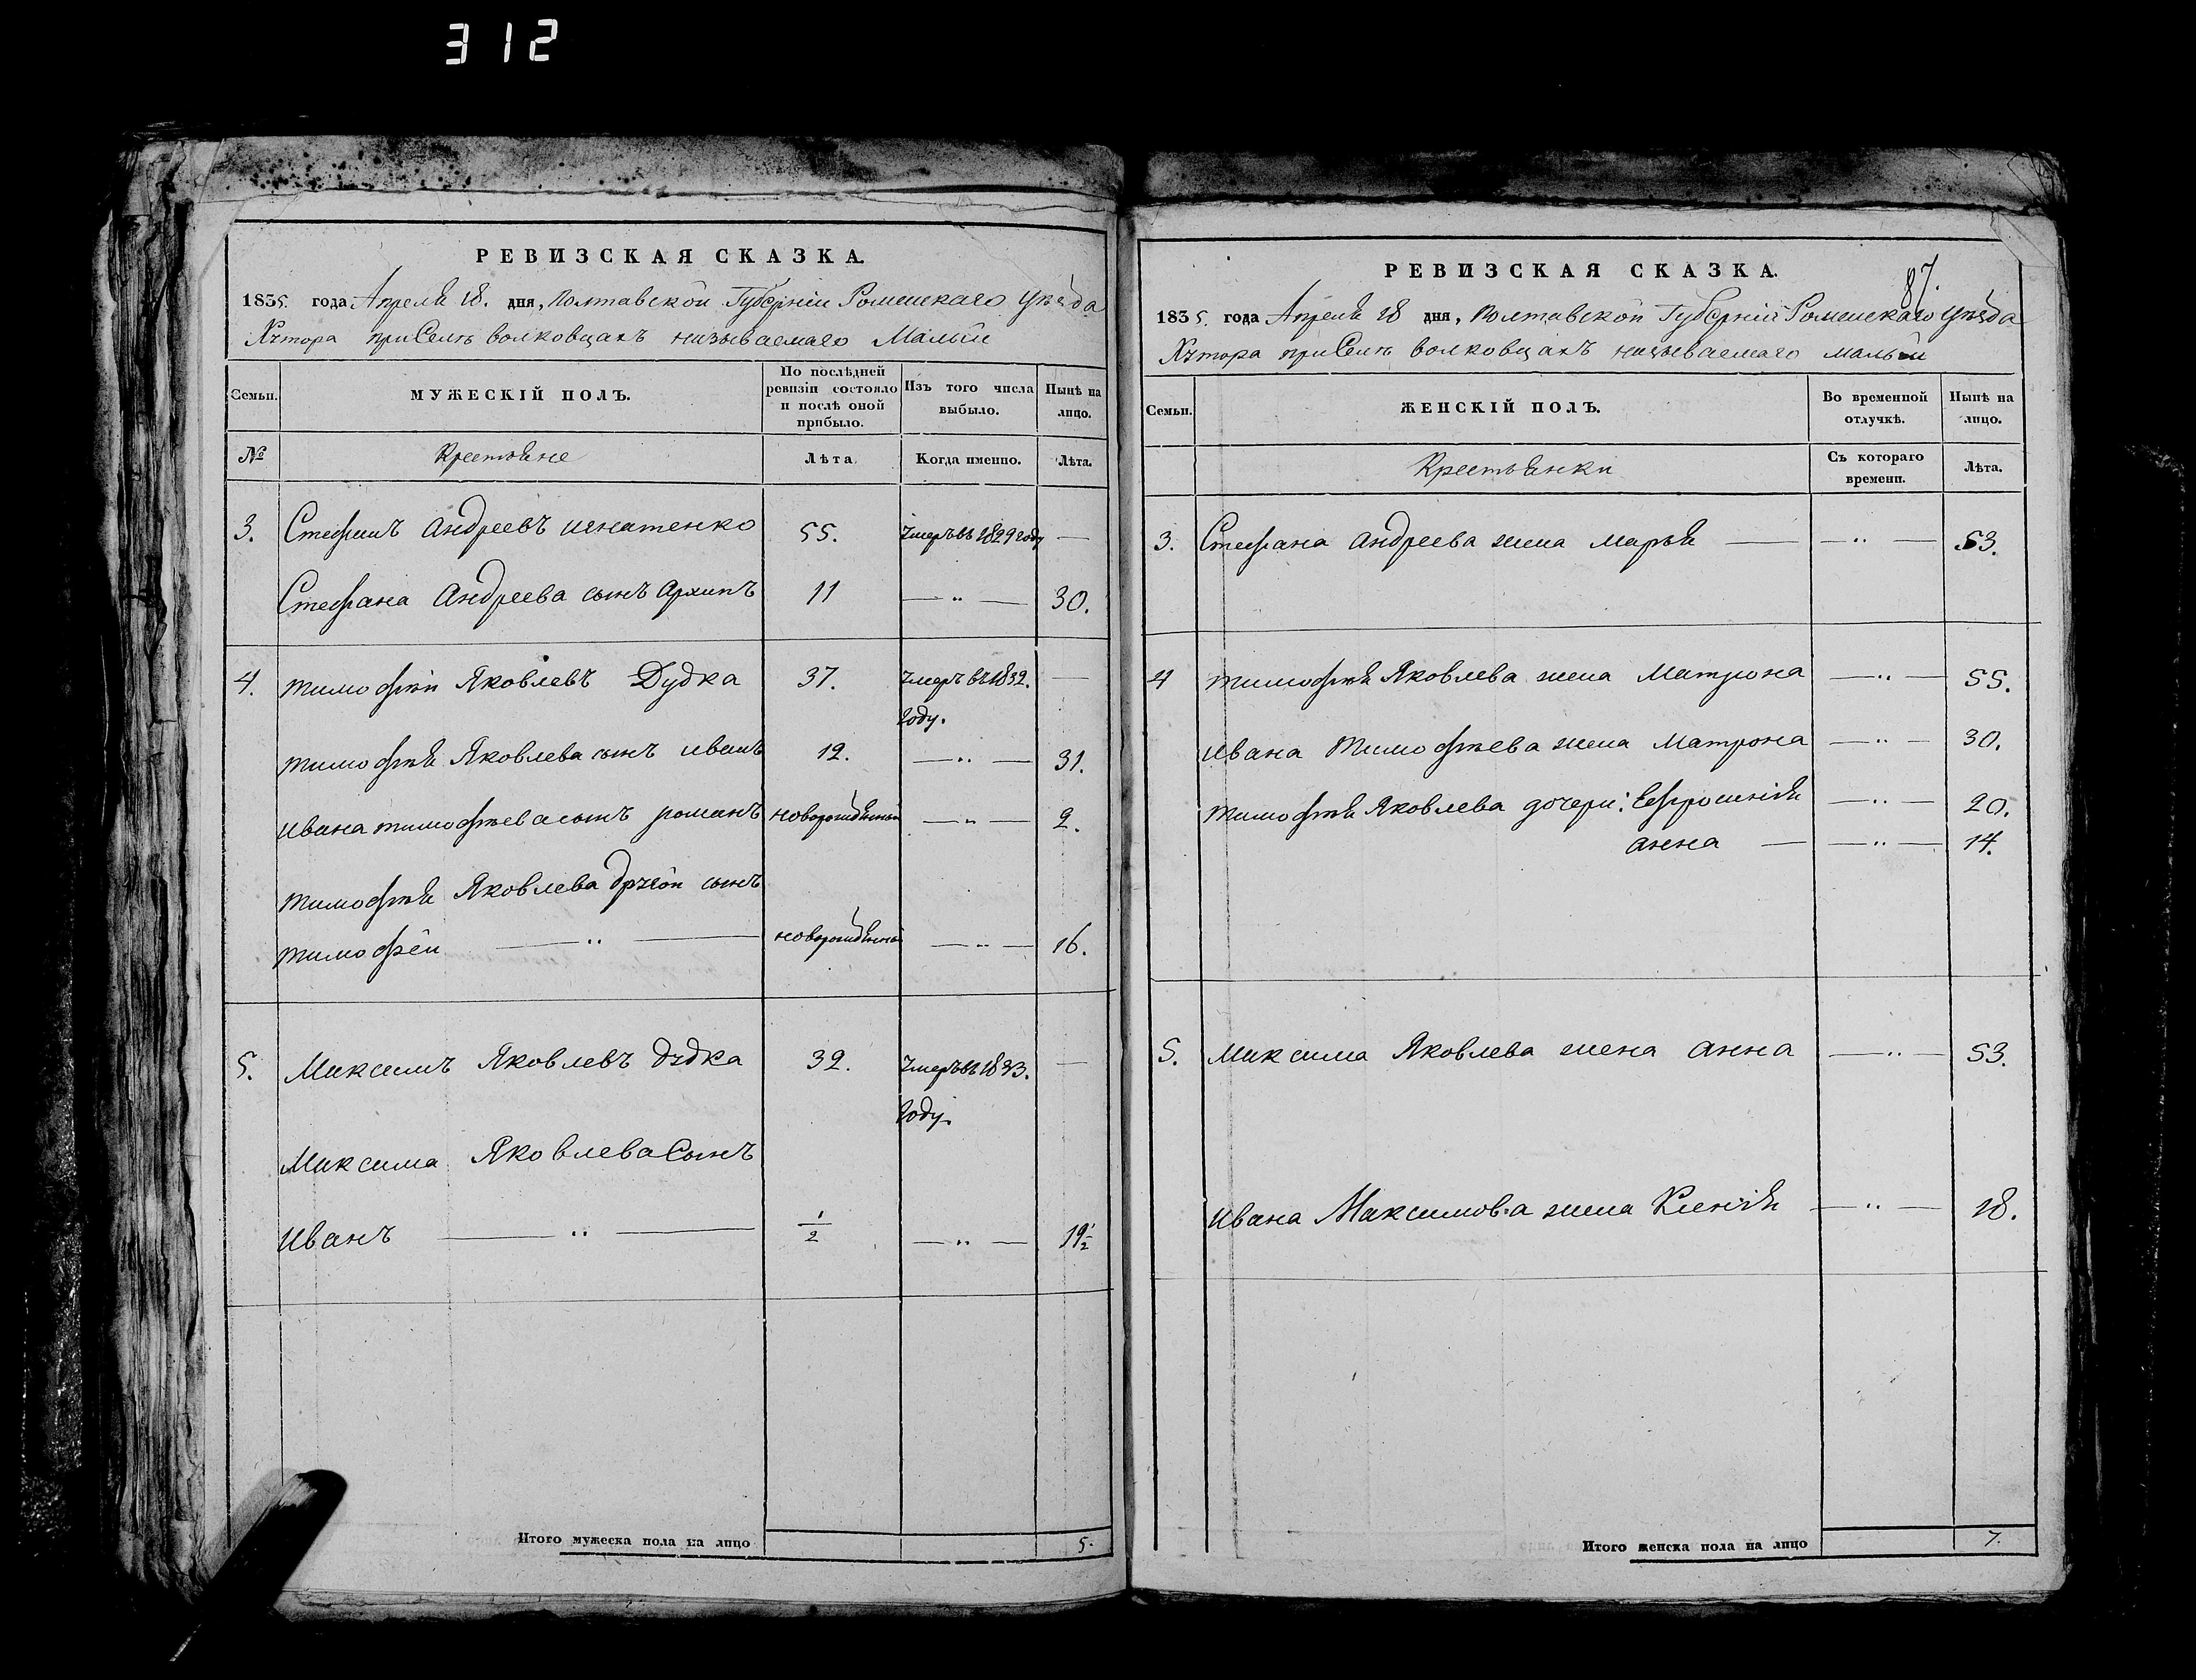 312
РЕВИЗСКАЯ СКАЗКА.
1835. года Апреля 18. дня, Полтавской Губернiи Роменскаго Уѣзда
Хутора при Селѣ волковцахъ называемаго Малый
Семьи.
МУЖЕСКIЙ ПОЛЪ.
По послѣдней ревизiи состояло и послѣ оной прибыло.
Изъ того числа выбыло.
Нынѣ на лицо.
№
Крестьяне
Лѣта
Когда именно.
Лѣта.
3. Стефанъ андреевъ игнатенко 55. Умеръ въ 1829 году —
Стефана Андреева сынъ Архипъ 11 — " — 30.
4. тимофѣй Яковлевъ Дудка 37. Умеръ въ 1832. —
году.
тимофѣя Яковлева сынъ иванъ 12. — " — 31.
ивана тимофѣева сынъ романъ новорожденный — " — 2.
тимофѣя Яковлева другой сынъ
тимофей — " — новорожденный — " — 16.
5. Максимъ Яковлевъ дудка 32. Умеръ въ 1833. —
году.
Максима Яковлева Сынъ
иванъ — " — 1/2 — " — 19 1/2
Итого мужеска пола на лицо 5.
87.
РЕВИЗСКАЯ СКАЗКА.
1835. года Апреля 18 дня, Полтавской Губернiи Роменскаго Уѣзда
Хутора при Селѣ волковцахъ называемаго малый
Семьи.
ЖЕНСКIЙ ПОЛЪ.
Во временной отлучкѣ.
Нынѣ на лицо.
Крестьянки
Съ котораго времени.
Лѣта.
3. Стефана андреева жена марья — — " — 53.
4 тимофѣя Яковлева жена Матрона — " — 55.
ивана Тимофѣева жена Матрона — " — 30.
тимофѣя Яковлева дочери: Ефросинiя — " — 20.
анна — — " — 14.
5. Максима Яковлева жена анна — " — 53.
ивана Максимова жена Ксенiя — " — 18.
Итого женска пола на лицо 7.